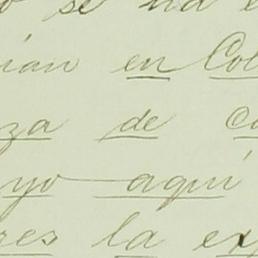 o se ha
ián en Col
za de
yo aquí
res la ex